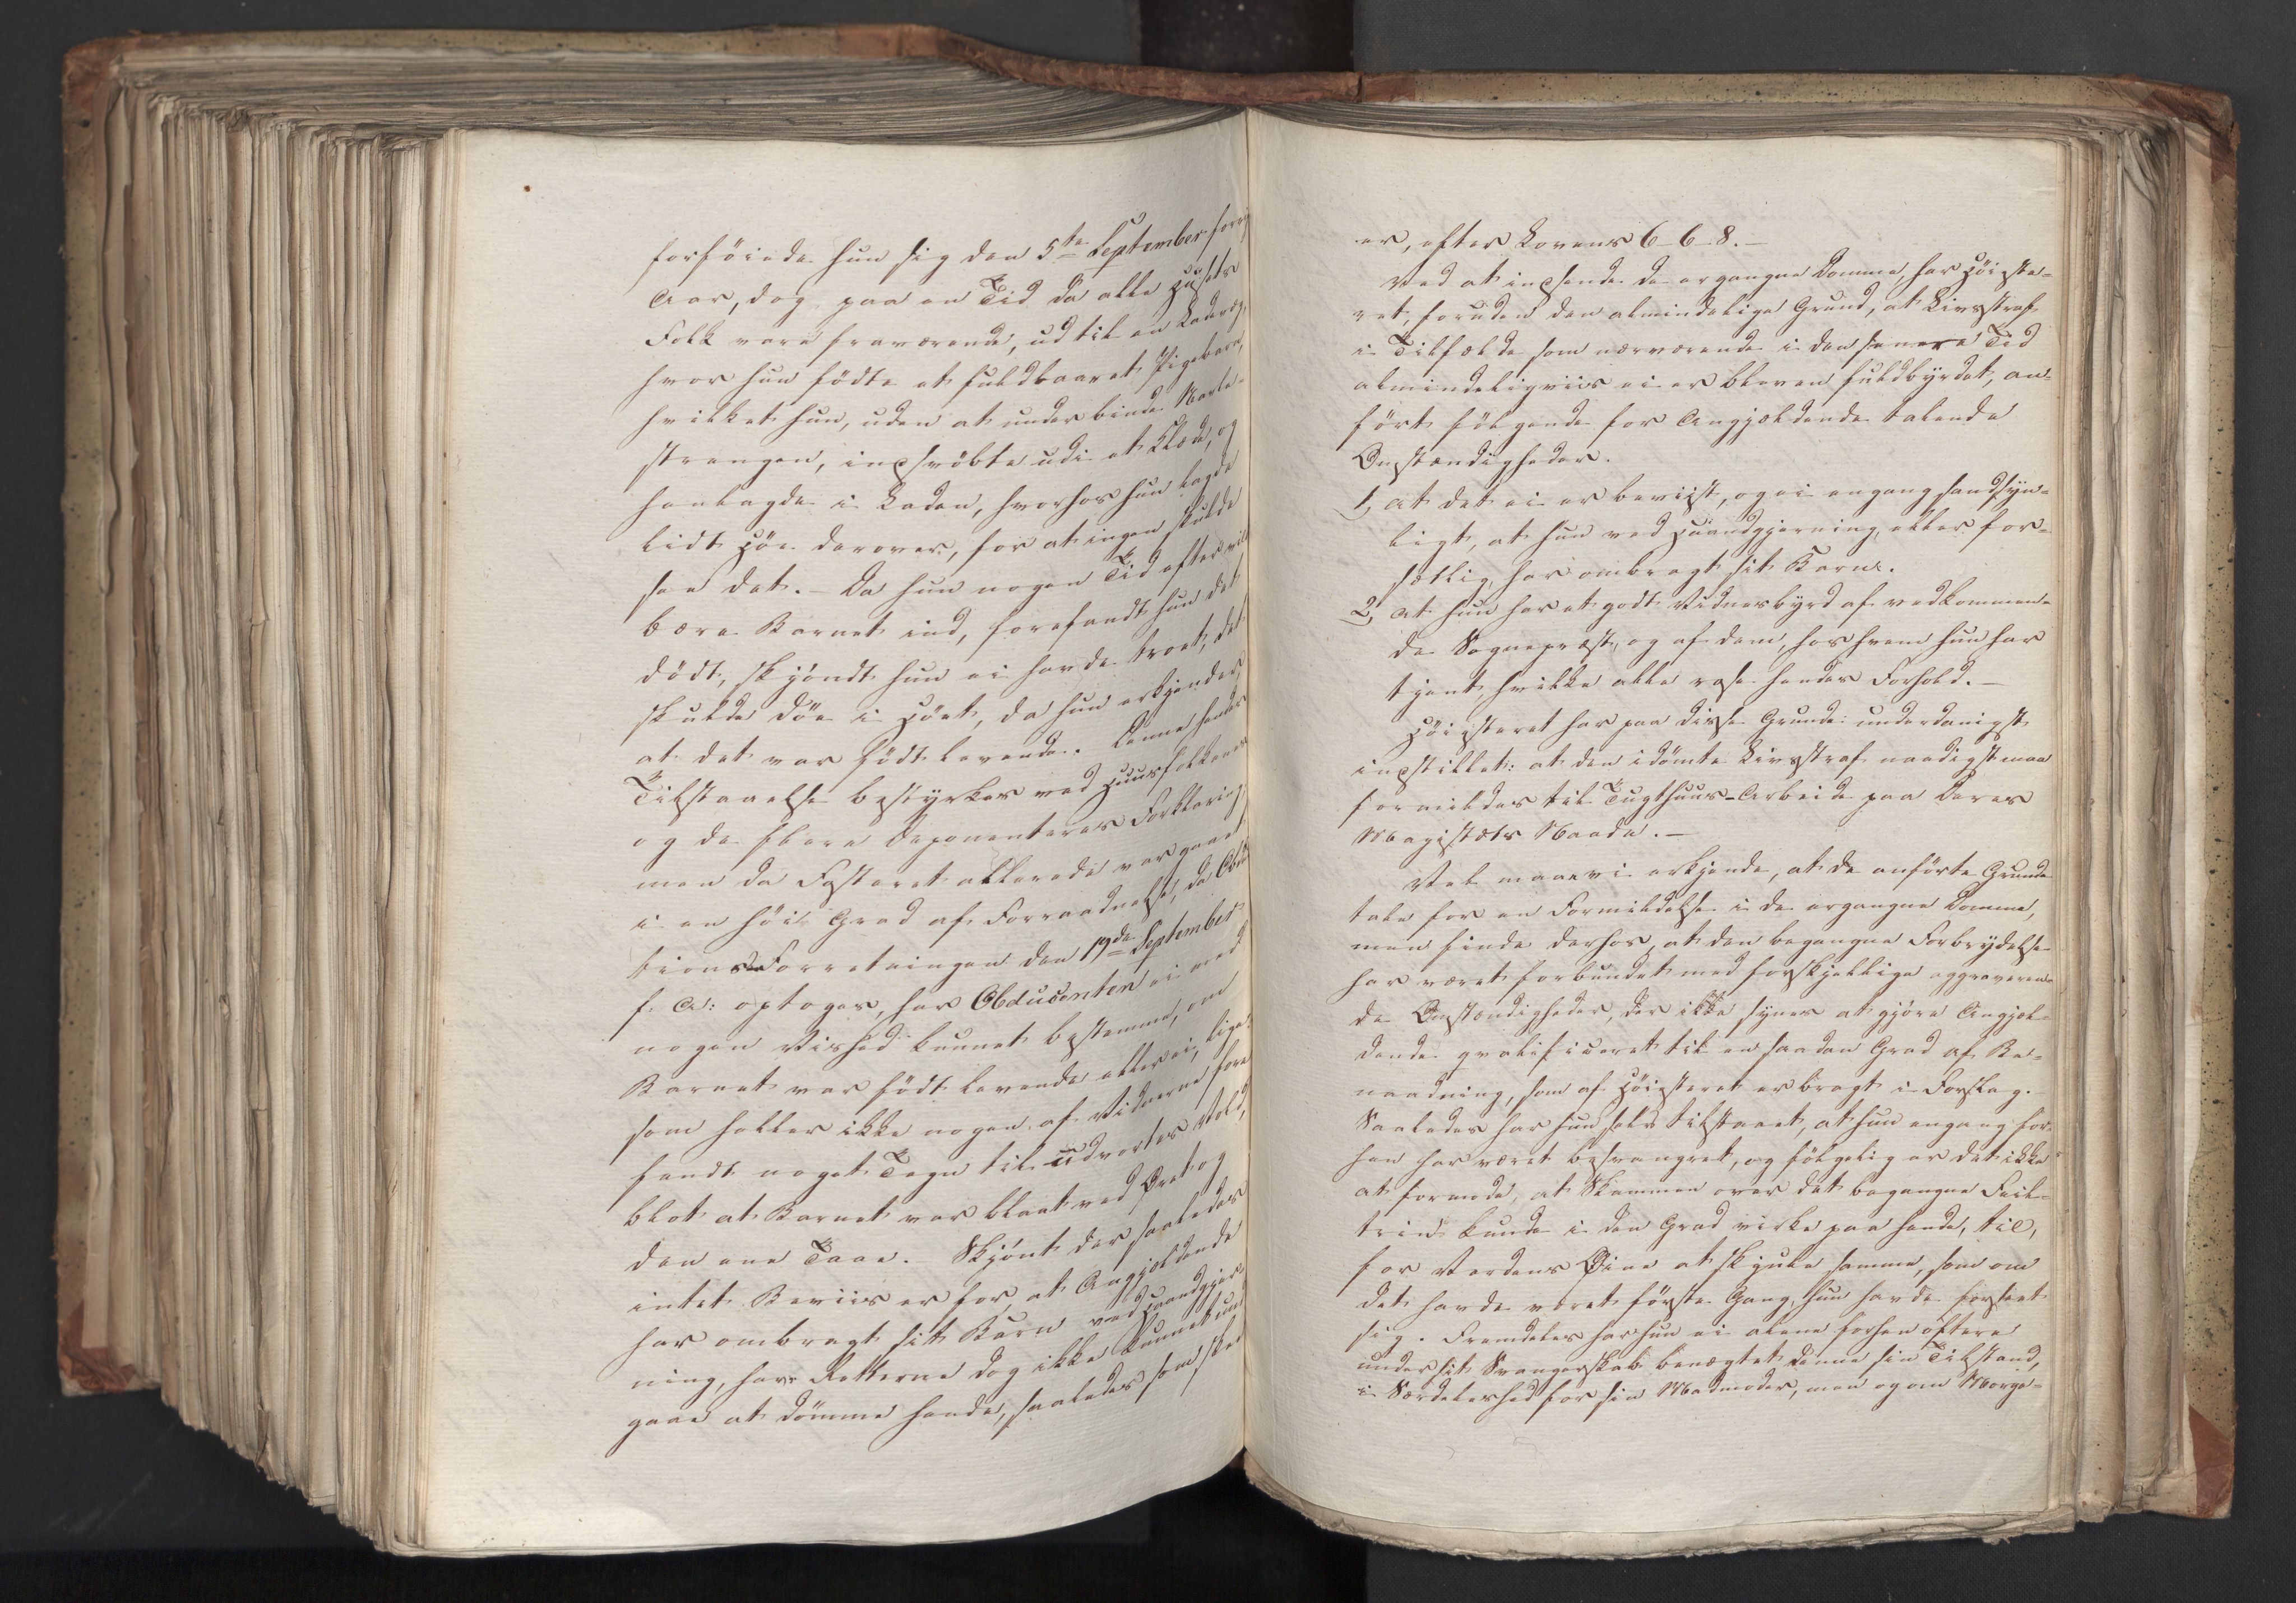 forföiede hun sig den 5te September forrige
Aar, dog paa en Tid da alle Husets
Folk vare fraværende, ud til en Ladevæg,
hvor hun födte et fuldbaaret Pigebarn,
hvilket hun, uden at underbinde Navle-
strengen, indsvöbte udi et Klæde, og
henlagde i Laden, hvorhos hun lagde
lidt Höe derover, for at ingen skulde
see det. – Da hun nogen Tid efter vil
bære Barnet ind, forefandt hun det
dödt, skjöndt hun ei havde troet, det
skulde döe i Höet, da hun erkjender,
at det var födt levende. Denne hendes
Tilstaaelse bestyrkes ved Huusfolkenes
og de flere Deponenteres Forklaring,
men da Fosteret allerede var gaaet
i en höi Grad af Forraadnelse, da Obduc-
tions Forretningen den 19de September
f. A: optoges, har Obducenten ei med
nogen Vished kunnet bestemme, om
Barnet var födt levende eller ei, lige-
som heller ikke nogen af Vidnerne fore
fandt noget Tegn til udvortes Vold,
blot at Barnet var blaat ved Öret og
den ene Taae. Skjönt der saaledes
intet Beviis er for, at Angjeldende
har ombragt sit Barn ved Haandgjer-
ning, have Retterne dog ikke kunnet und-
gaae at dömme hende, saaledes som skeet
er, efter Lovens 6–6–8. –
Ved at indsende de ergangne Domme, har Höieste-
ret, foruden den almindelige Grund, at Livsstraf
i Tilfælde som nærværende i den senere Tid
almindeligviis ei er bleven fuldbyrdet, an-
fört fölgende for Angjældende talende
Omstændigheder.
1, at det ei er beviist, og ei engang sandsyn-
ligt, at hun ved Haandgjerning, eller for-
sætlig, har ombragt sit Barn.
2, at hun har et godt Vidnesbyrd af vedkommen-
de Sognepræst, og af dem, hos hvem hun har
tjent, hvilke alle rose hendes Forhold. –
Höiesteret har paa disse Grunde underdanigst
indstillet: at den idömte Livsstraf naadigst maa
formildes til Tugthuus-Arbeide paa Deres
Majestæts Naade. –
Vel maae vi erkjende, at de anförte Grunde
tale for en Formildelse i de ergangne Domme,
men finde derhos, at den begangne Forbrydelse
har været forbundet med forskjellige aggraveren-
de Omstændigheder, der ikke synes at gjöre Angjæl-
dende qvalificeret til en saadan Grad af Be-
naadning, som af Höiesteret er bragt i Forslag.
Saaledes har hun selv tilstaaet, at hun engang for-
hen har været besvangret, og fölgelig er det ikke
at formode, at Skammen over det begangne Feil-
trin kunde i den Grad virke paa hende, til,
for Verdens Öine at skjule samme, som om
det havde været förste Gang, hun havde forseet
sig. Fremdeles har hun ei alene forhen oftere
under sit Svangerskab benægtet denne sin Tilstand,
i Særdeleshed for sin Madmoder, men og om Morge-